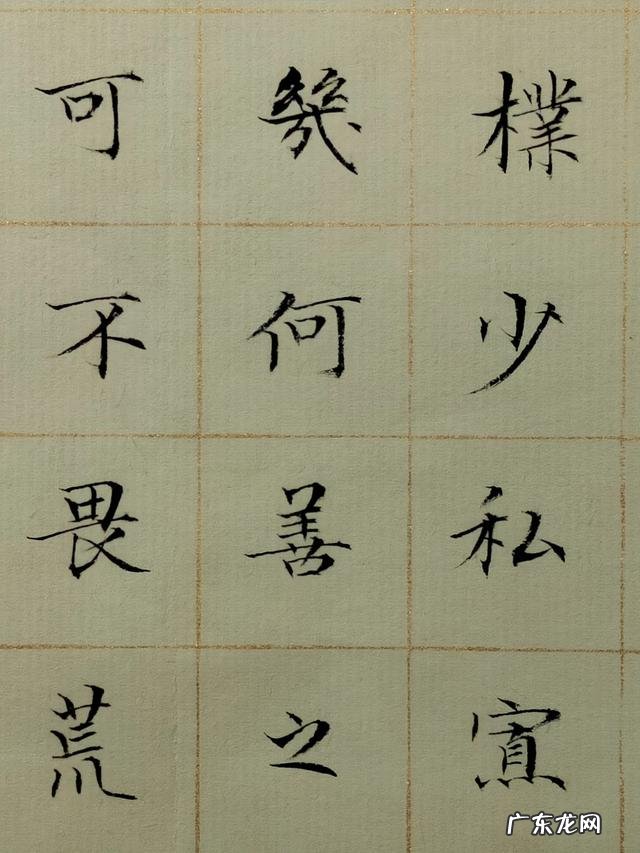 樸少私寡
幾何善之
可不畏荒
广东龙网